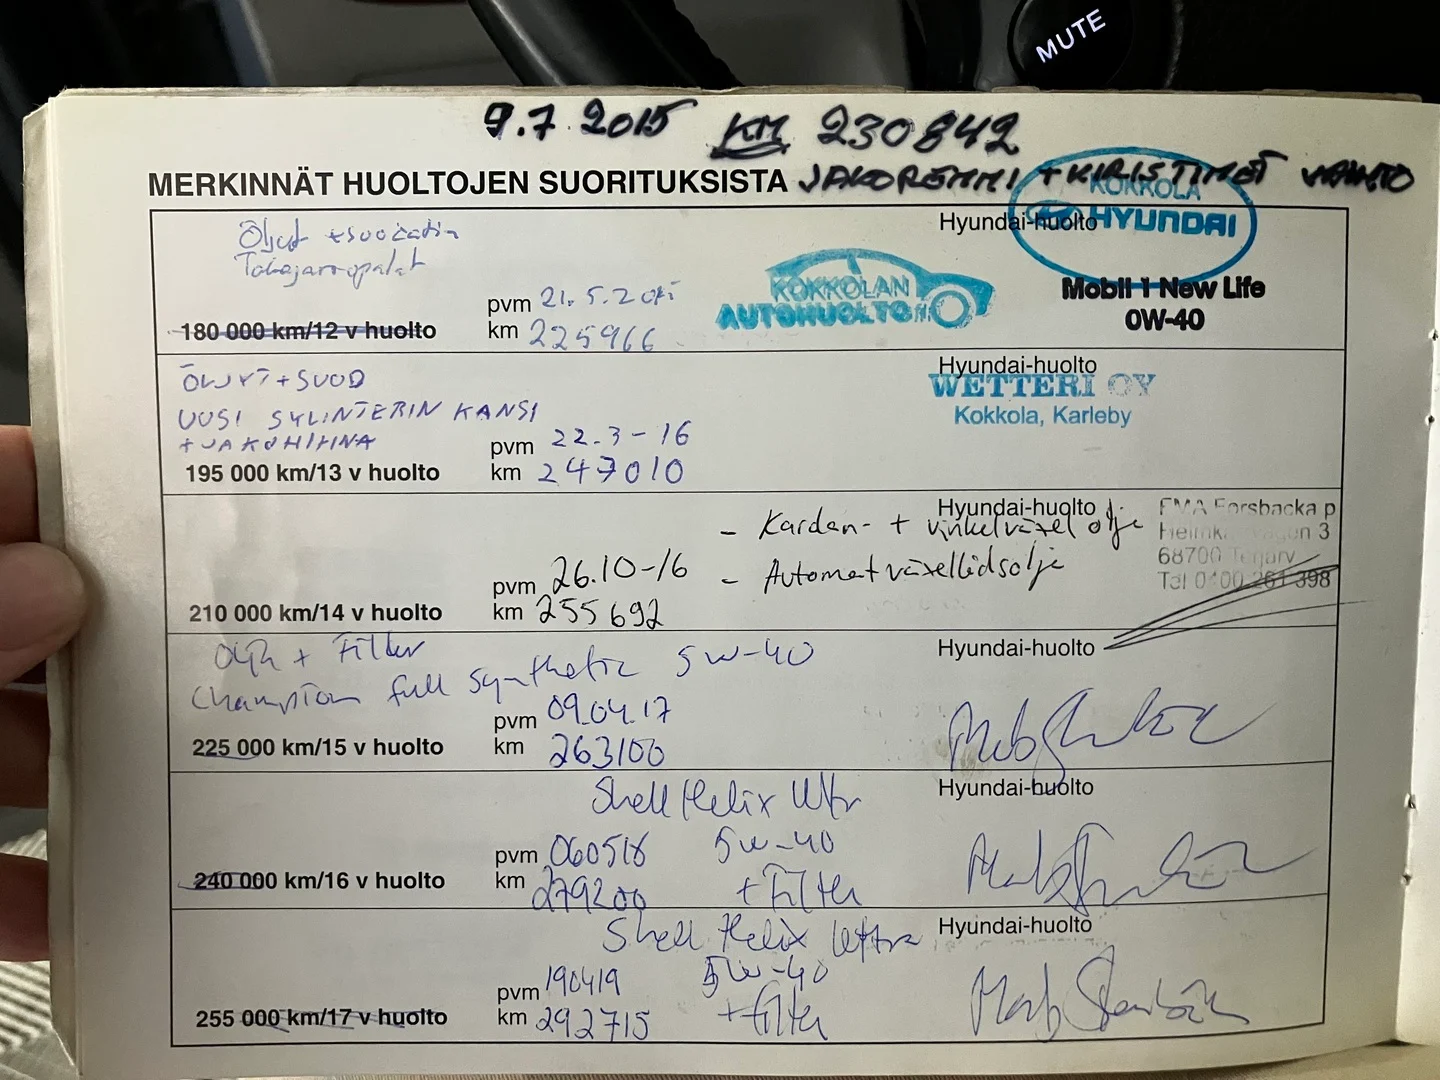 MUTE
9.7.2015 KM 230842
MERKINNÄT HUOLTOJEN SUORITUKSISTA JAKOREMMI + KIRISTIMET VAIHTO
KOKKOLA
HYUNDAI
Hyundai-huolto
Öljyt +suodatin
Takajarrupalat
KOKKOLAN
AUTOHUOLTO
Mobil 1 New Life
0W-40
pvm 21.5.2015
180 000 km/12 v huolto km 225966
Hyundai-huolto
ÖLJYT + SUOD
WETTERI OY
Kokkola, Karleby
UUSI SYLINTERIN KANSI
+ JAKOHIHNA
pvm 22.3-16
195 000 km/13 v huolto km 247010
Hyundai-huolto
- Kardan- + vinkelväxel olje
- Automatväxellådsolje
FMA Forsbacka p
68700 Terjärv
Tel 0400 261 398
pvm 26.10-16
210 000 km/14 v huolto km 255692
Hyundai-huolto
Olja + Filter
Champion full synthetic 5w-40
pvm 09.04.17
225 000 km/15 v huolto km 263100
Hyundai-huolto
Shell Helix Ultra
pvm 060518 5w-40
240 000 km/16 v huolto km 279200 + Filter
Hyundai-huolto
Shell Helix Ultra
pvm 190419 5w-40
255 000 km/17 v huolto km 292715 + filter